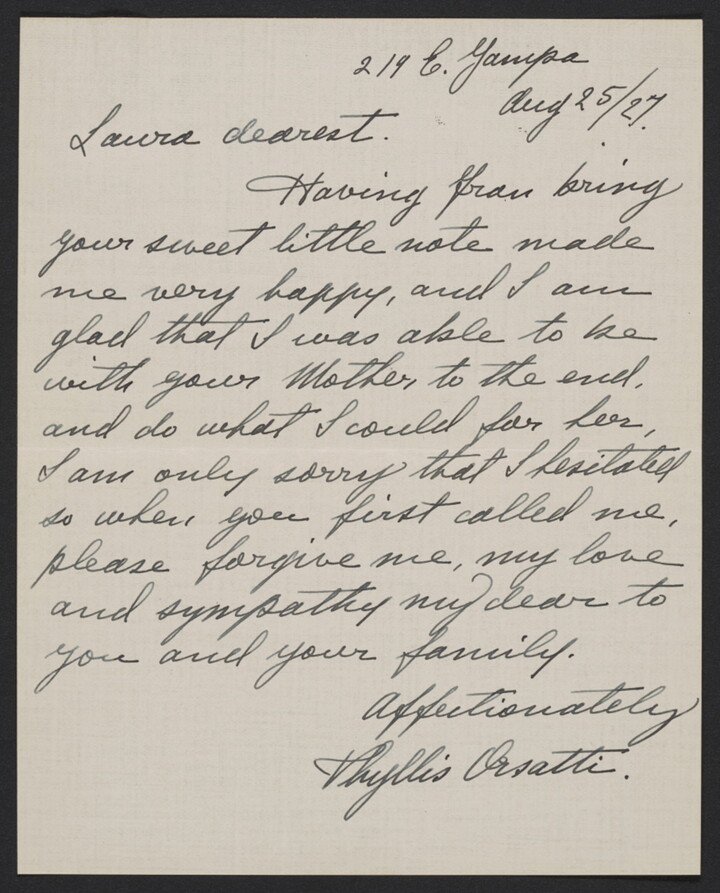 219 E. Yampa
Aug 25/27.
Laura dearest.
Having Fran bring
your sweet little note made
me very happy, and I am
glad that I was able to be
with your Mother to the end,
and do what I could for her,
I am only sorry that I hesitated
so when you first called me,
please forgive me, my love
and sympathy my dear to
you and your family.
Affectionately
Phyllis Orsatti.